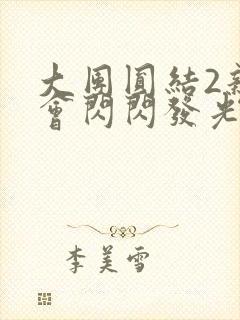 大團圓結2新
會閃閃發光
李美雪